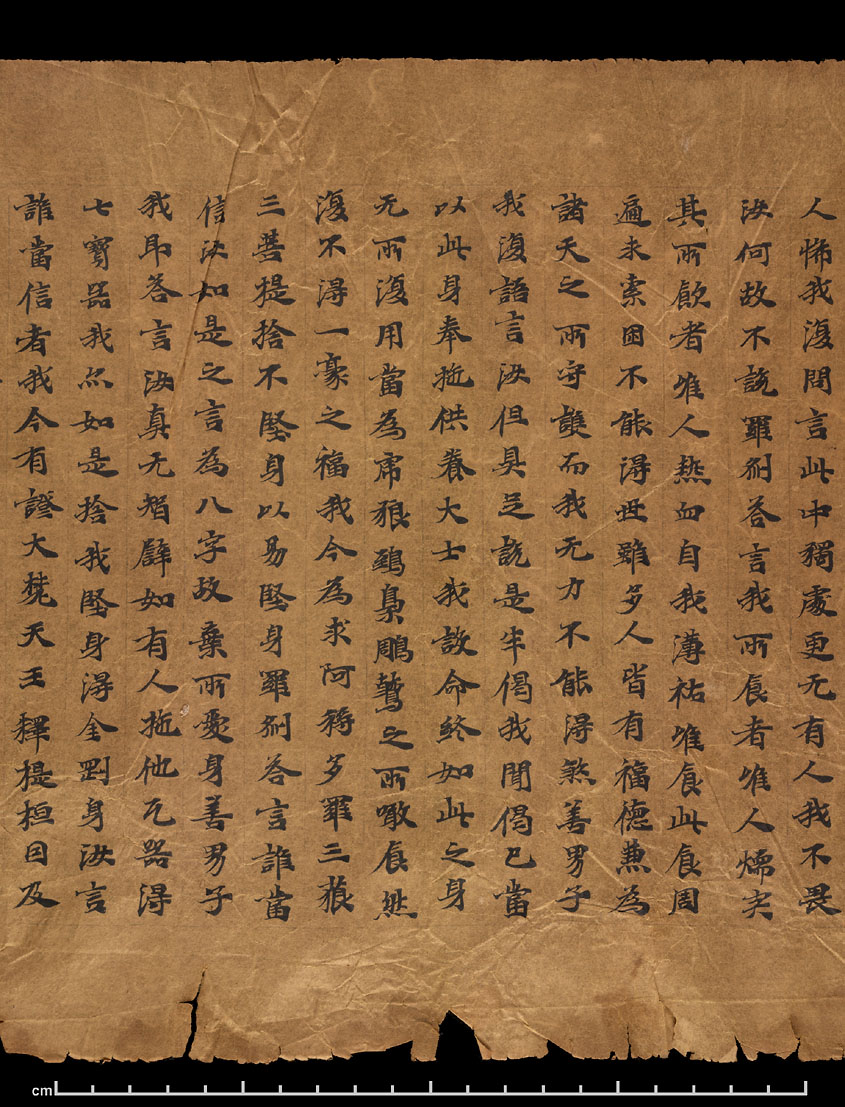 人怖我復問言此中獨處更无有人我不畏
汝何故不說羅剎答言我所食者唯人燸宍
其所飲者唯人熱血自我薄祐唯食此食周
遍求索困不能得世雖多人皆有福德兼為
諸天之所守護而我无力不能得煞善男子
我復語言汝但具足說是半偈我聞偈已當
以此身奉施供養大士我設命終如此之身
无所復用當為虎狼鵄梟鵰鷲之所噉食然
復不得一豪之福我今為求阿耨多羅三藐
三菩提捨不堅身以易堅身羅剎答言誰當
信汝如是之言為八字故棄所愛身善男子
我即答言汝真无智譬如有人施他瓦器得
七寶器我尒如是捨我堅身得金剛身汝言
誰當信者我今有證大梵天王釋提桓因及
cm